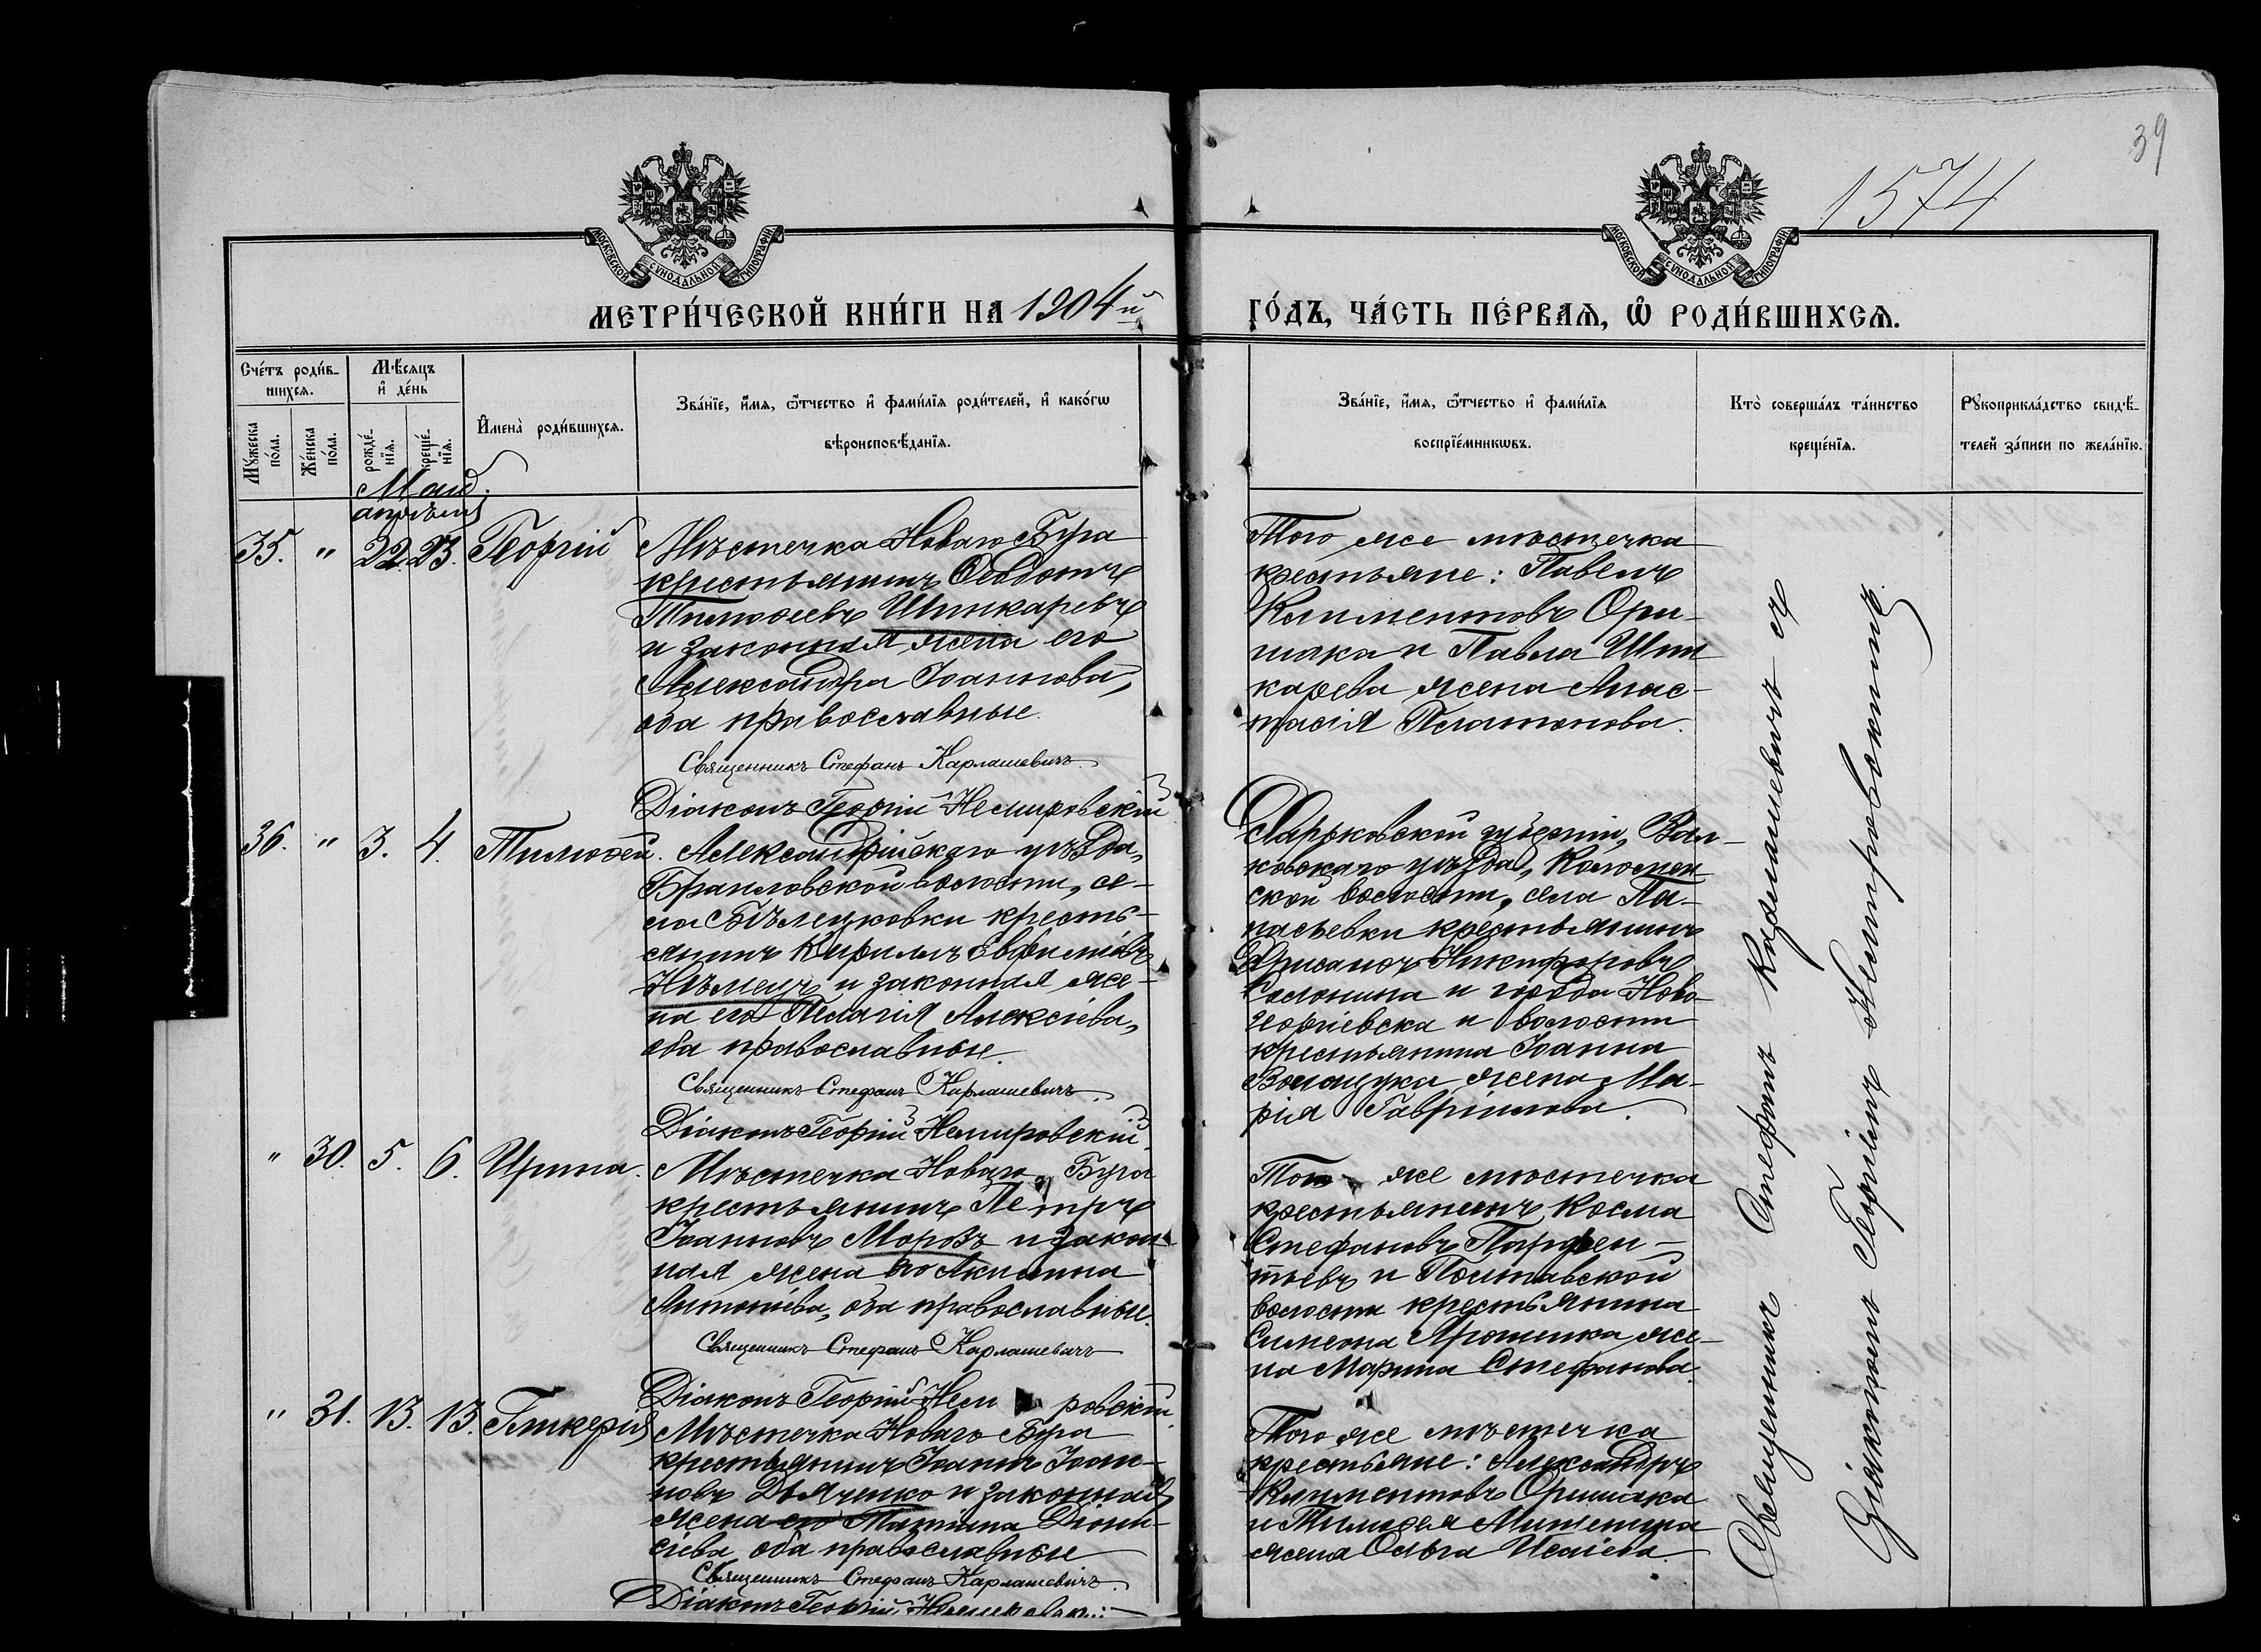 39
1574
МОСКОВСКОЙ СѴНОДАЛЬНОЙ ТИПОГРАФІИ
МОСКОВСКОЙ СѴНОДАЛЬНОЙ ТИПОГРАФІИ
МЕТРИ́ЧЕСКОЙ КНИ́ГИ НА 1904й
ГО́ДЪ, ЧА́СТЬ ПЕ́РВАѦ, Ѡ҆ РОДИ́ВШИХСѦ.
Сче́тъ роди́в-
шихсѧ.
Мѣ́сѧцъ
и҆ де́нь
Мꙋ́жеска
по́ла.
Же́нска
по́ла.
рожде́-
нїѧ.
креще́-
нїѧ.
И҆мена̀ роди́вшихсѧ.
Зва́нїе, и҆́мѧ, ѻ҆́тчество и҆ фами́лїѧ роди́телей, и҆ како́гѡ
вѣроисповѣ́данїѧ.
Зва́нїе, и҆́мѧ, ѻ҆́тчество и҆ фами́лїѧ
воспрїе́мникѡвъ.
Кто̀ соверша́лъ та́инство
креще́нїѧ.
Рꙋкоприкла́дство свидѣ́-
телей за́писи по жела́нїю.
Май.
апрѣля
35. " 22. 23. Георгій
Мѣстечка Новаго Буга
крестьянинъ Ѳеодотъ
Тимоѳеевъ Шинкаревъ
и законная жена его
Александра Іоаннова,
оба православные.
Священникъ Стефанъ Карлашевичъ.
Діаконъ Георгій Немировскій
Того же мѣстечка
крестьяне: Павелъ
Климентовъ Ори-
щака и Павла Шин
карева жена Анас-
тасія Платонова.
36. " 3. 4. Тимоѳей.
Александрійскаго уѣзда,
Браиловской волости, се-
ла Бѣлецковки кресть-
янинъ Кириллъ Евфиміевъ
Нѣмецъ и законная же-
на его Пелагія Алексіева,
оба православные
Священникъ Стефанъ Карлашевичъ.
Діаконъ Георгій Немировскій
Харьковской губерніи, Вал-
ковскаго уѣзда,
ской волости, села Па-
насьевки крестьянинъ
Никифоровъ
Солонина и города Ново-
георгіевска и волости
крестьянина Іоанна
жена Ма-
рія Гавріилова.
" 30. 5. 6. Ирина.
Мѣстечка Новаго Буга
крестьянинъ Петръ
Іоанновъ Морозъ и закон-
ная жена его Акилина
Антоніева, оба православные.
Священникъ Стефанъ Карлашевичъ
Діаконъ Георгій Неми ровскій.
Того же мѣстечка
крестьянинъ Косма
Стефановъ Парфен-
тьевъ и Полтавской
волости крестьянина
Симеона Ярошенка же-
на Марина Стефанова.
" 31. 13. 13. Гликерія
Мѣстечка Новаго Буга
крестьянинъ Іоаннъ Іоан-
новъ Дьяченко и законная
жена его Татіана Діони-
сіева оба православные
Священникъ Стефанъ Карлашевичъ.
Діаконъ Георгій
Того же мѣстечка
крестьяне: Александръ
Климентовъ Орищака
и Тимоѳея
жена Ольга Исаіева.
Священникъ Стефанъ Карлашевичъ съ
Діакономъ Георгіемъ Немировскимъ.